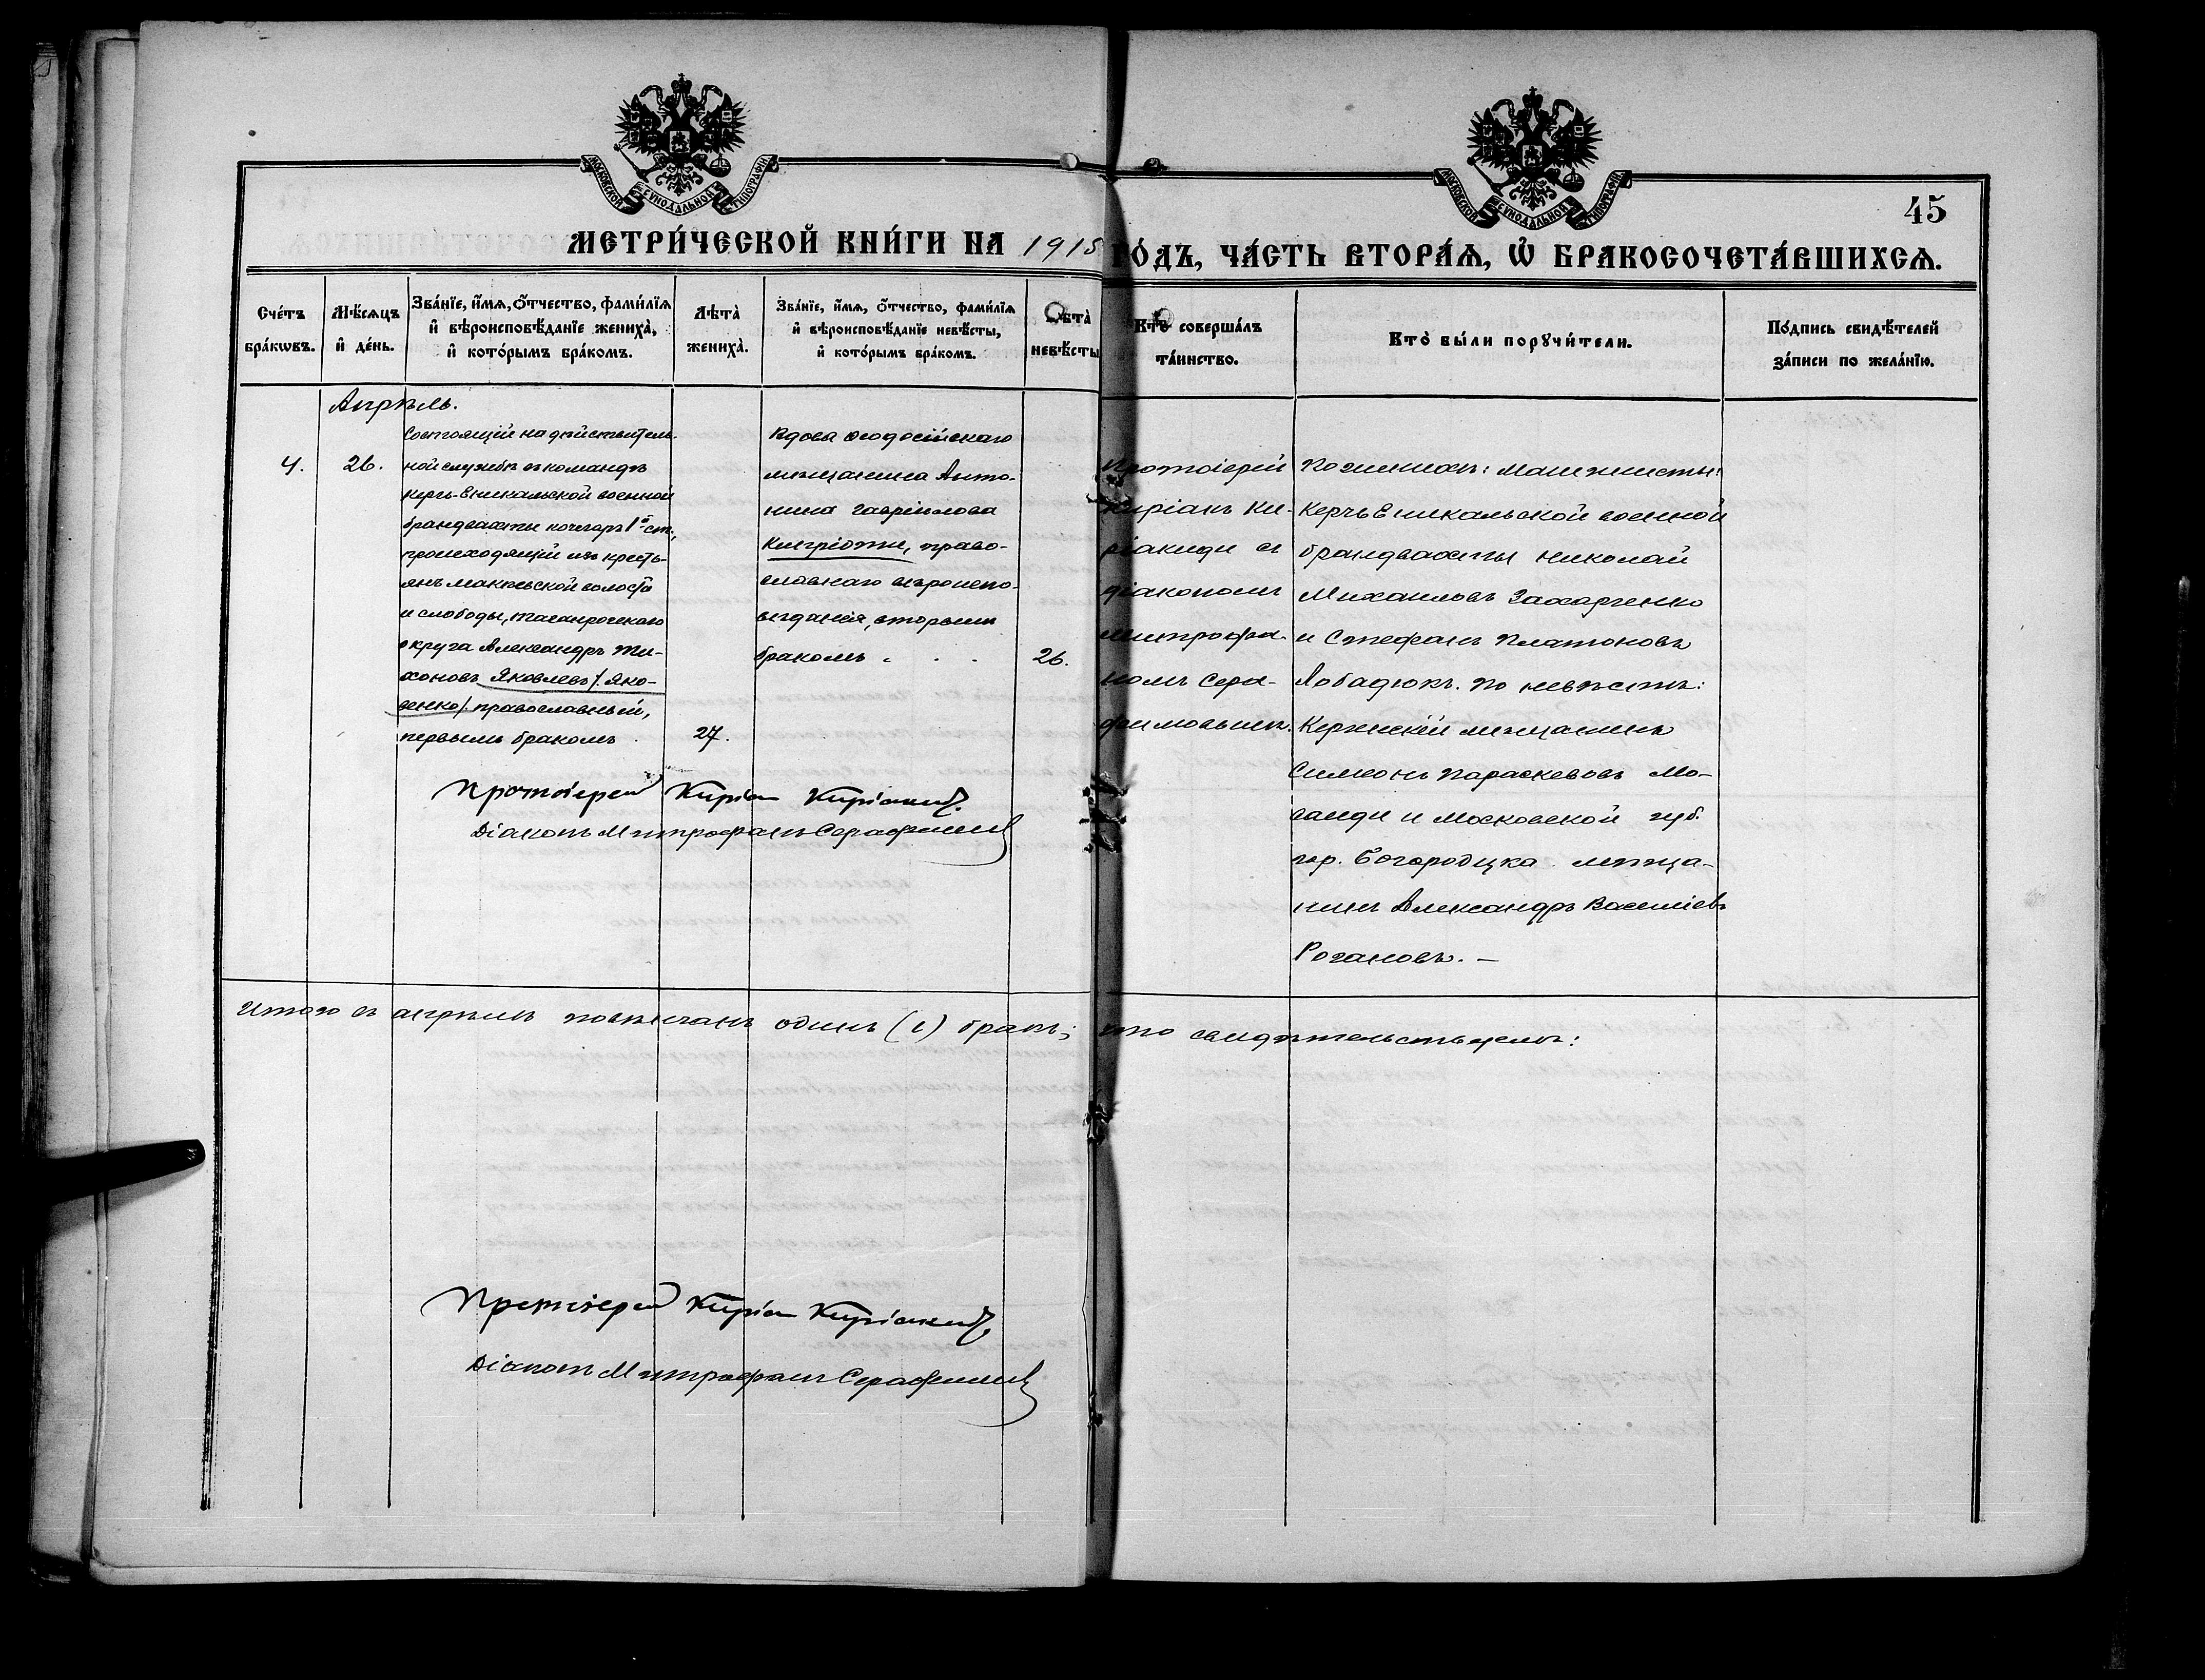 МОСКОВСКОЙ СУНОДАЛЬНОЙ ТИПОГРАФІИ
МОСКОВСКОЙ СУНОДАЛЬНОЙ ТИПОГРАФІИ
45
МЕТРИ́ЧЕСКОЙ КНИ́ГИ НА 1915 ГО́ДЪ, ЧА́СТЬ ВТОРА́Ѧ, Ѡ҆ БРАКОСОЧЕТА́ВШИХСѦ.
Сче́тъ бра́кѡвъ.
Мѣ́сѧцъ и҆ де́нь.
Зва́нїе, и҆́мѧ, ѻ҆́тчество, фами́лїѧ и҆ вѣроисповѣ́данїе жениха̀, и҆ кото́рымъ бра́комъ.
Лѣта̀ жениха̀.
Зва́нїе, и҆́мѧ, ѻ҆́тчество, фами́лїѧ и҆ вѣроисповѣ́данїе невѣ́сты, и҆ кото́рымъ бра́комъ.
Лѣта̀ невѣ́сты
Кто̀ соверша́лъ та́инство.
Кто̀ бы́ли порꙋчи́тели.
По́дпись свидѣ́телей за́писи по жела́нїю.
Апрѣль.
4.
26.
Состоящій на дѣйствитель-
ной службѣ въ командѣ
Керчь-Еникальской военной
брандвахты кочегаръ 1й ст.,
происходящій изъ кресть-
янъ Макѣевской волости
и слободы, Таганрогскаго
округа Александръ Ти-
хоновъ Яковлевъ /Яко-
венко/ православный,
первымъ бракомъ
27.
Вдова Ѳеодосійскаго
мѣщанина Анто-
нина Гавріилова
Кипріоти, право-
славнаго вѣроиспо-
вѣданія, вторымъ
бракомъ
26.
Протоіерей
Киріакъ Ки-
ріакиди съ
діакономъ
Митрофа-
номъ Сера-
фимовымъ.
По женихѣ: машинисты:
Керчь Еникальской военной
брандвахты Николай
Михаиловъ Захарченко
и Стефанъ Платоновъ
Лобадюкъ. По невѣстѣ:
Керченскій мѣщанинъ
Симеонъ Параскевовъ Мо-
санди и Московской губ.
гор. Богородцка мѣща-
нинъ Александръ Василіевъ
Рогановъ. —
Протоіерей Киріакъ Киріакиди.
Діаконъ Митрофанъ Серафимовъ
Итого въ апрѣлѣ повѣнчанъ одинъ (1) бракъ; что свидѣтельствуемъ:
Протоіерей Киріакъ Киріакиди.
Діаконъ Митрофанъ Серафимовъ